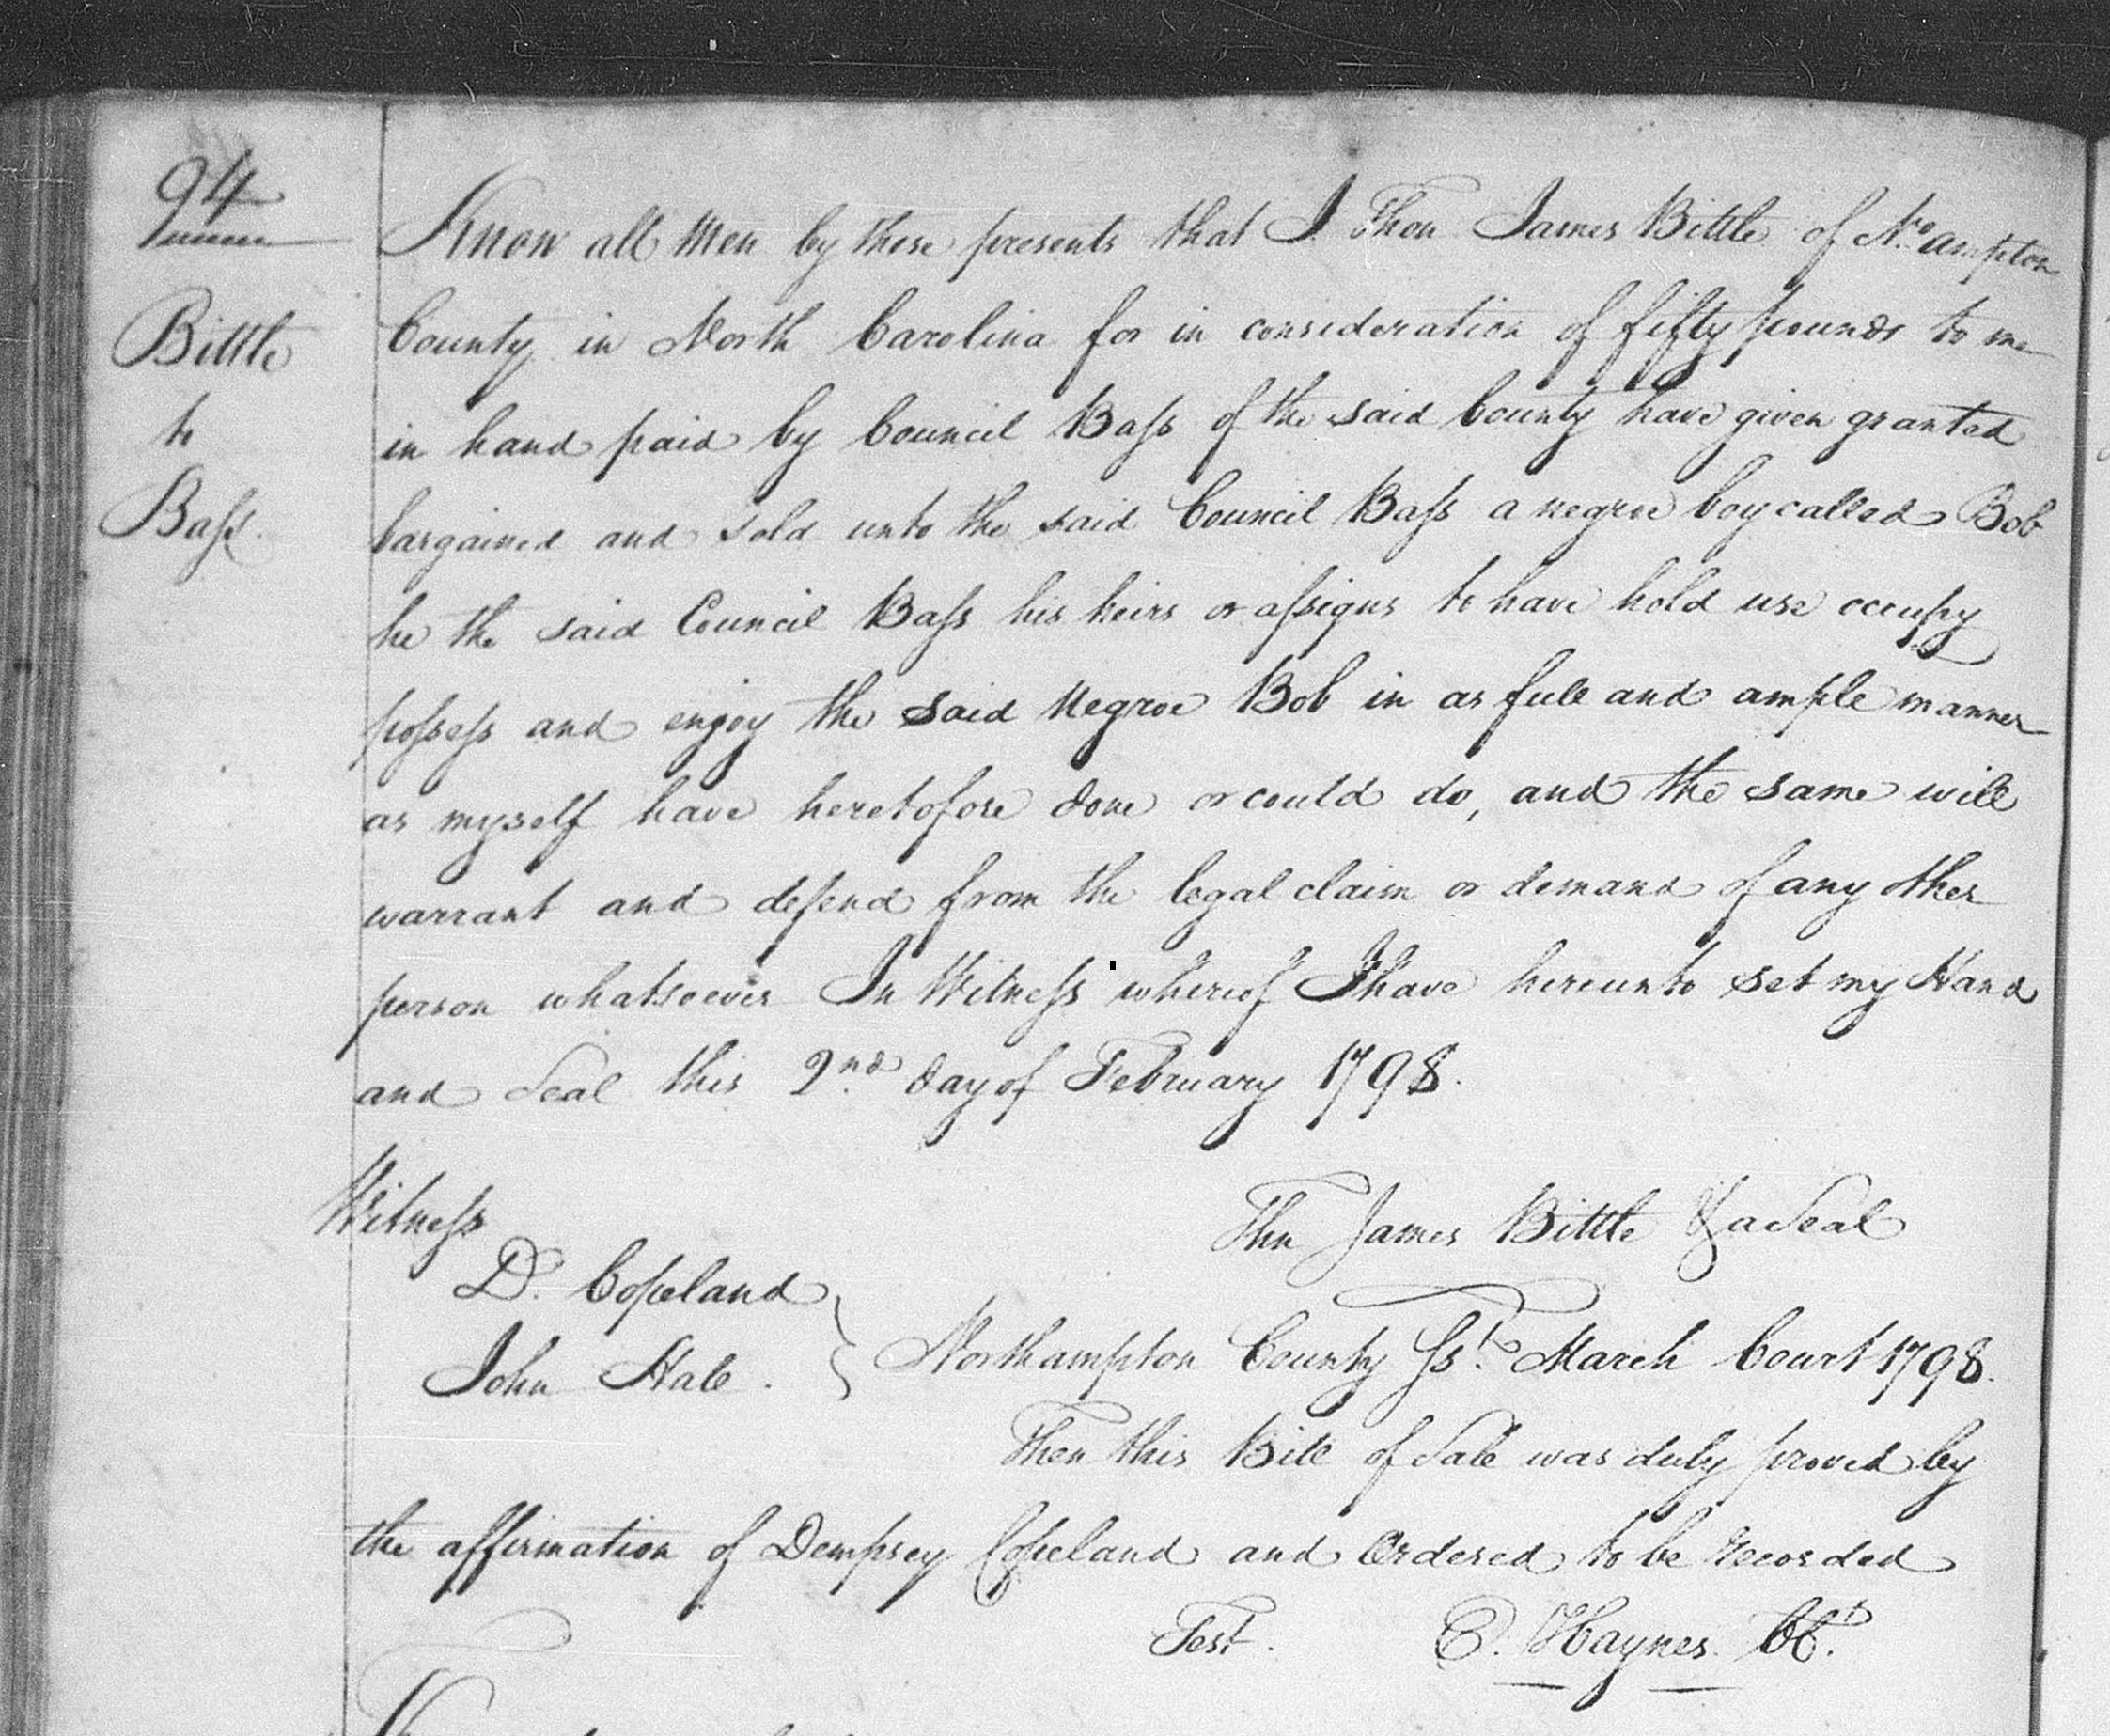 94
Bittle
to
Bass.
Know all Men by these presents that I Thon James Bittle of No.ampton
County in North Carolina for in consideration of fifty pounds to me
in hand paid by Council Bass of the said County have given granted
bargained and sold unto the said Council Bass a negroe boy called Bob
he the said Council Bass his heirs or assigns to have hold use occupy
possess and enjoy the said Negroe Bob in as full and ample manner
as myself have heretofore done or could do, and the same will
warrant and defend from the legal claim or demand of any other
person whatsoever In Witness whereof I have hereunto set my Hand
and Seal this 2nd day of February 1798.
Witness
Thn James Bittle & a Seal
D. Copeland
John Hale.
Northampton County Sst. March Court 1798.
Then this Bill of Sale was duly proved by
the affirmation of Dempsey Copeland and Ordered to be recorded
Test. E. Haynes